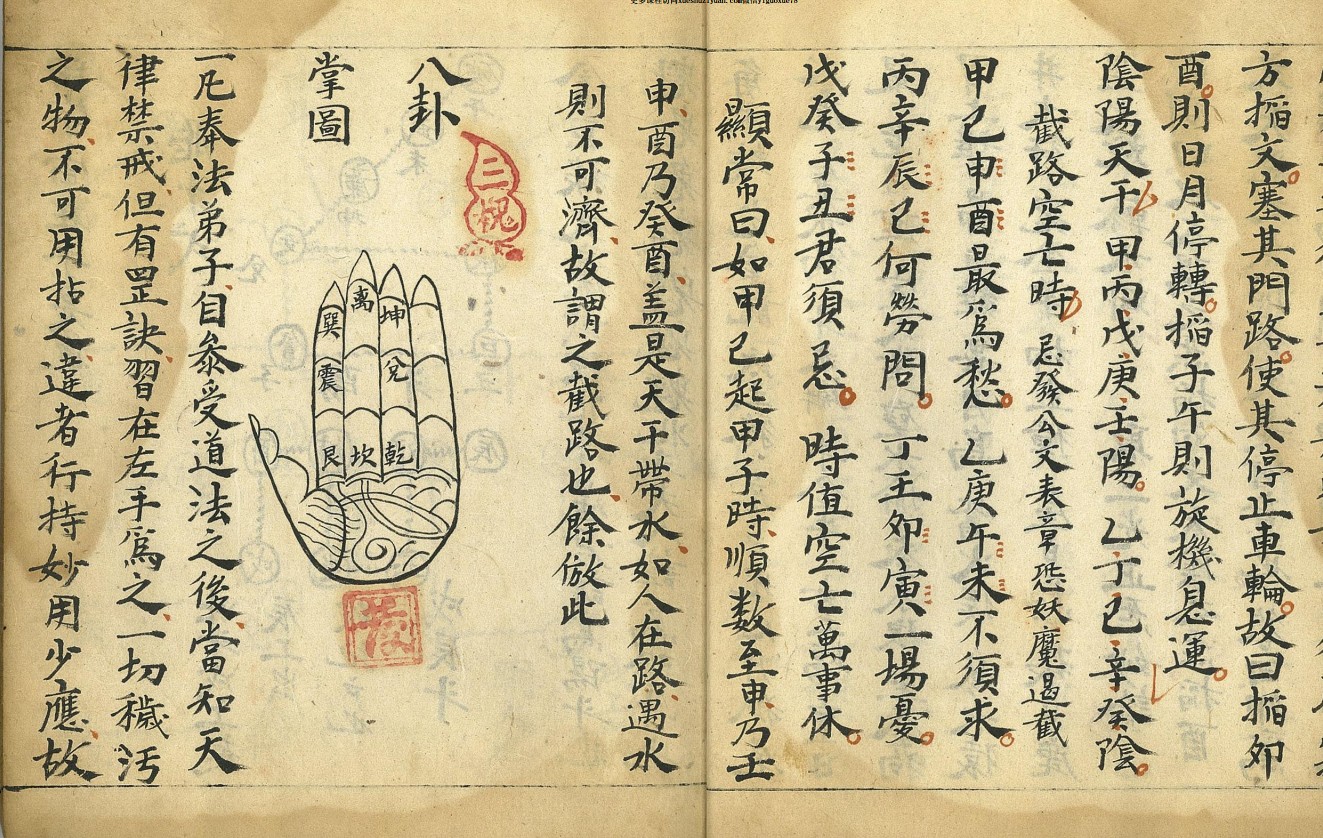 方掐文塞其門路使其停止車輪故曰掐卯
酉則日月停轉掐子午則旋機息運
陰陽天干 甲丙戊庚壬陽 乙丁己辛癸陰
截路空亡時 忌發公文表章恐妖魔遏截
甲己申酉最爲愁 乙庚午未不須求
丙辛辰巳何勞問 丁壬卯寅一場憂
戊癸子丑君須忌 時值空亡萬事休
顯常曰如甲己起甲子時順数至申乃壬
申酉乃癸酉盖是天干帶水如人在路遇水
則不可濟故謂之截路也餘倣此
八卦
掌圖
巽 離 坤
震 兌
艮 坎 乾
一凡奉法弟子自叅受道法之後當知天
律禁戒但有罡訣習在左手爲之一切穢汚
之物不可用拈之違者行持妙用少應故